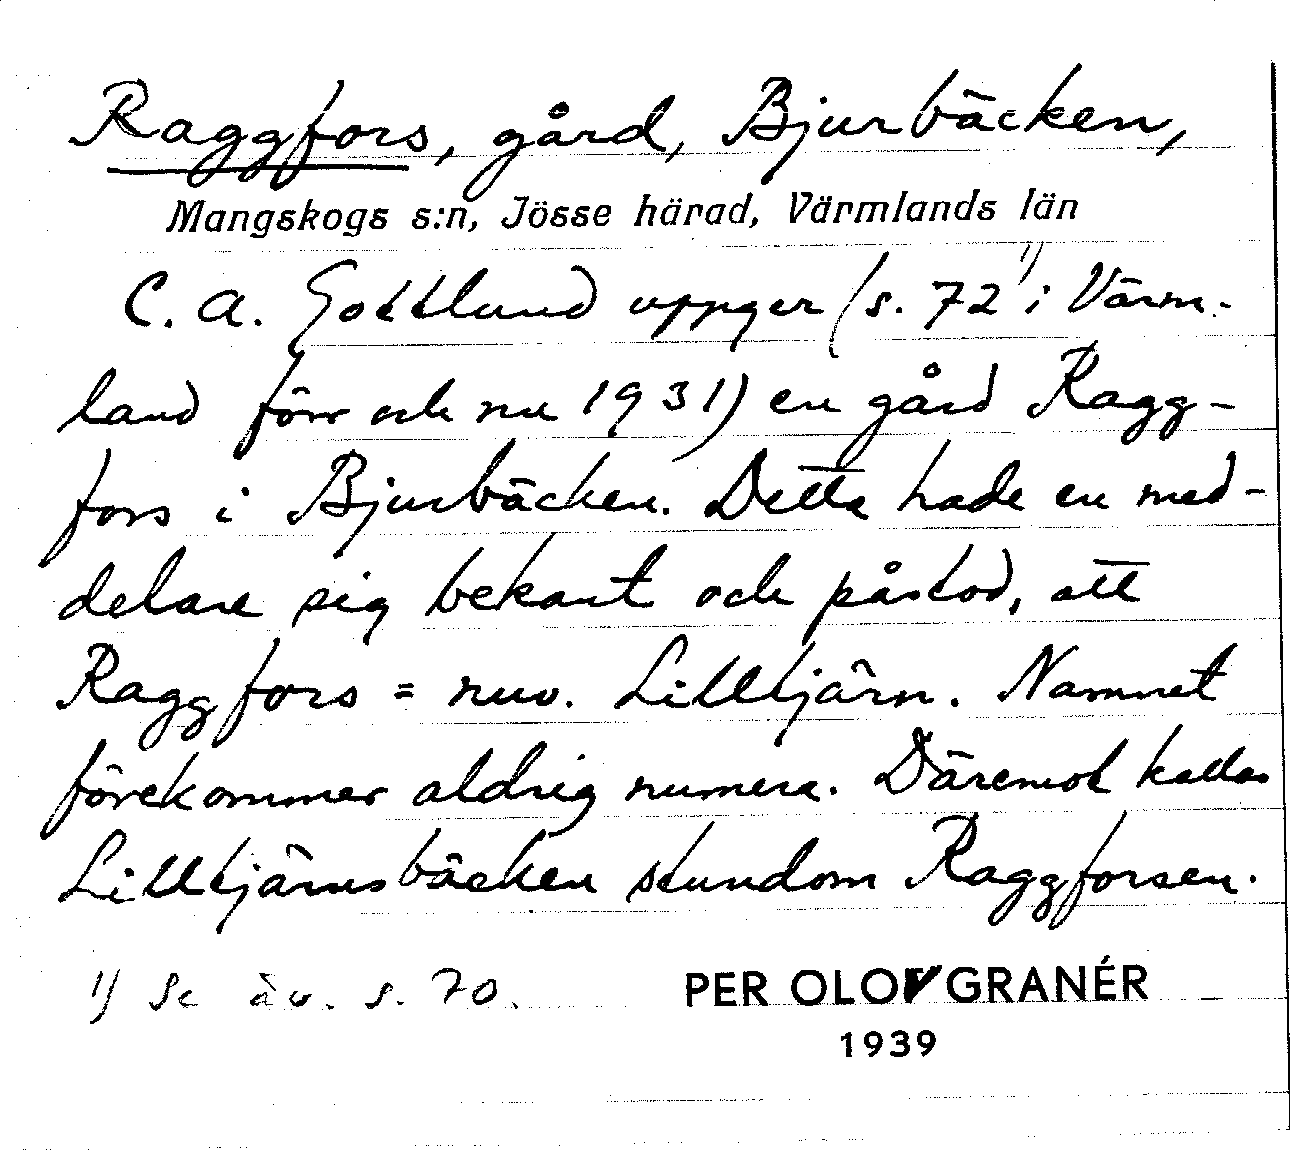 Raggfors, gård, Bjurbäcken,
Mangskogs s:n, Jösse härad, Värmlands län
C. A. Gottlund uppger (s. 72 1) i Värm-
land förr och nu 1931) en gård Ragg-
fors i Bjurbäcken. Detta hade en med-
delare sig bekant och påstod, att
Raggfors = nuv. Lilltjärn. Namnet
förekommer aldrig numera. Däremot kallas
Lilltjärnsbäcken stundom Raggforsen.
1) Se äv. s. 70.
PER OLOV GRANÉR
1939